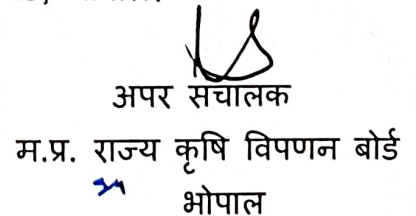 अपर संचालक
म.प्र. राज्य कृषि विपणन बोर्ड
भोपाल